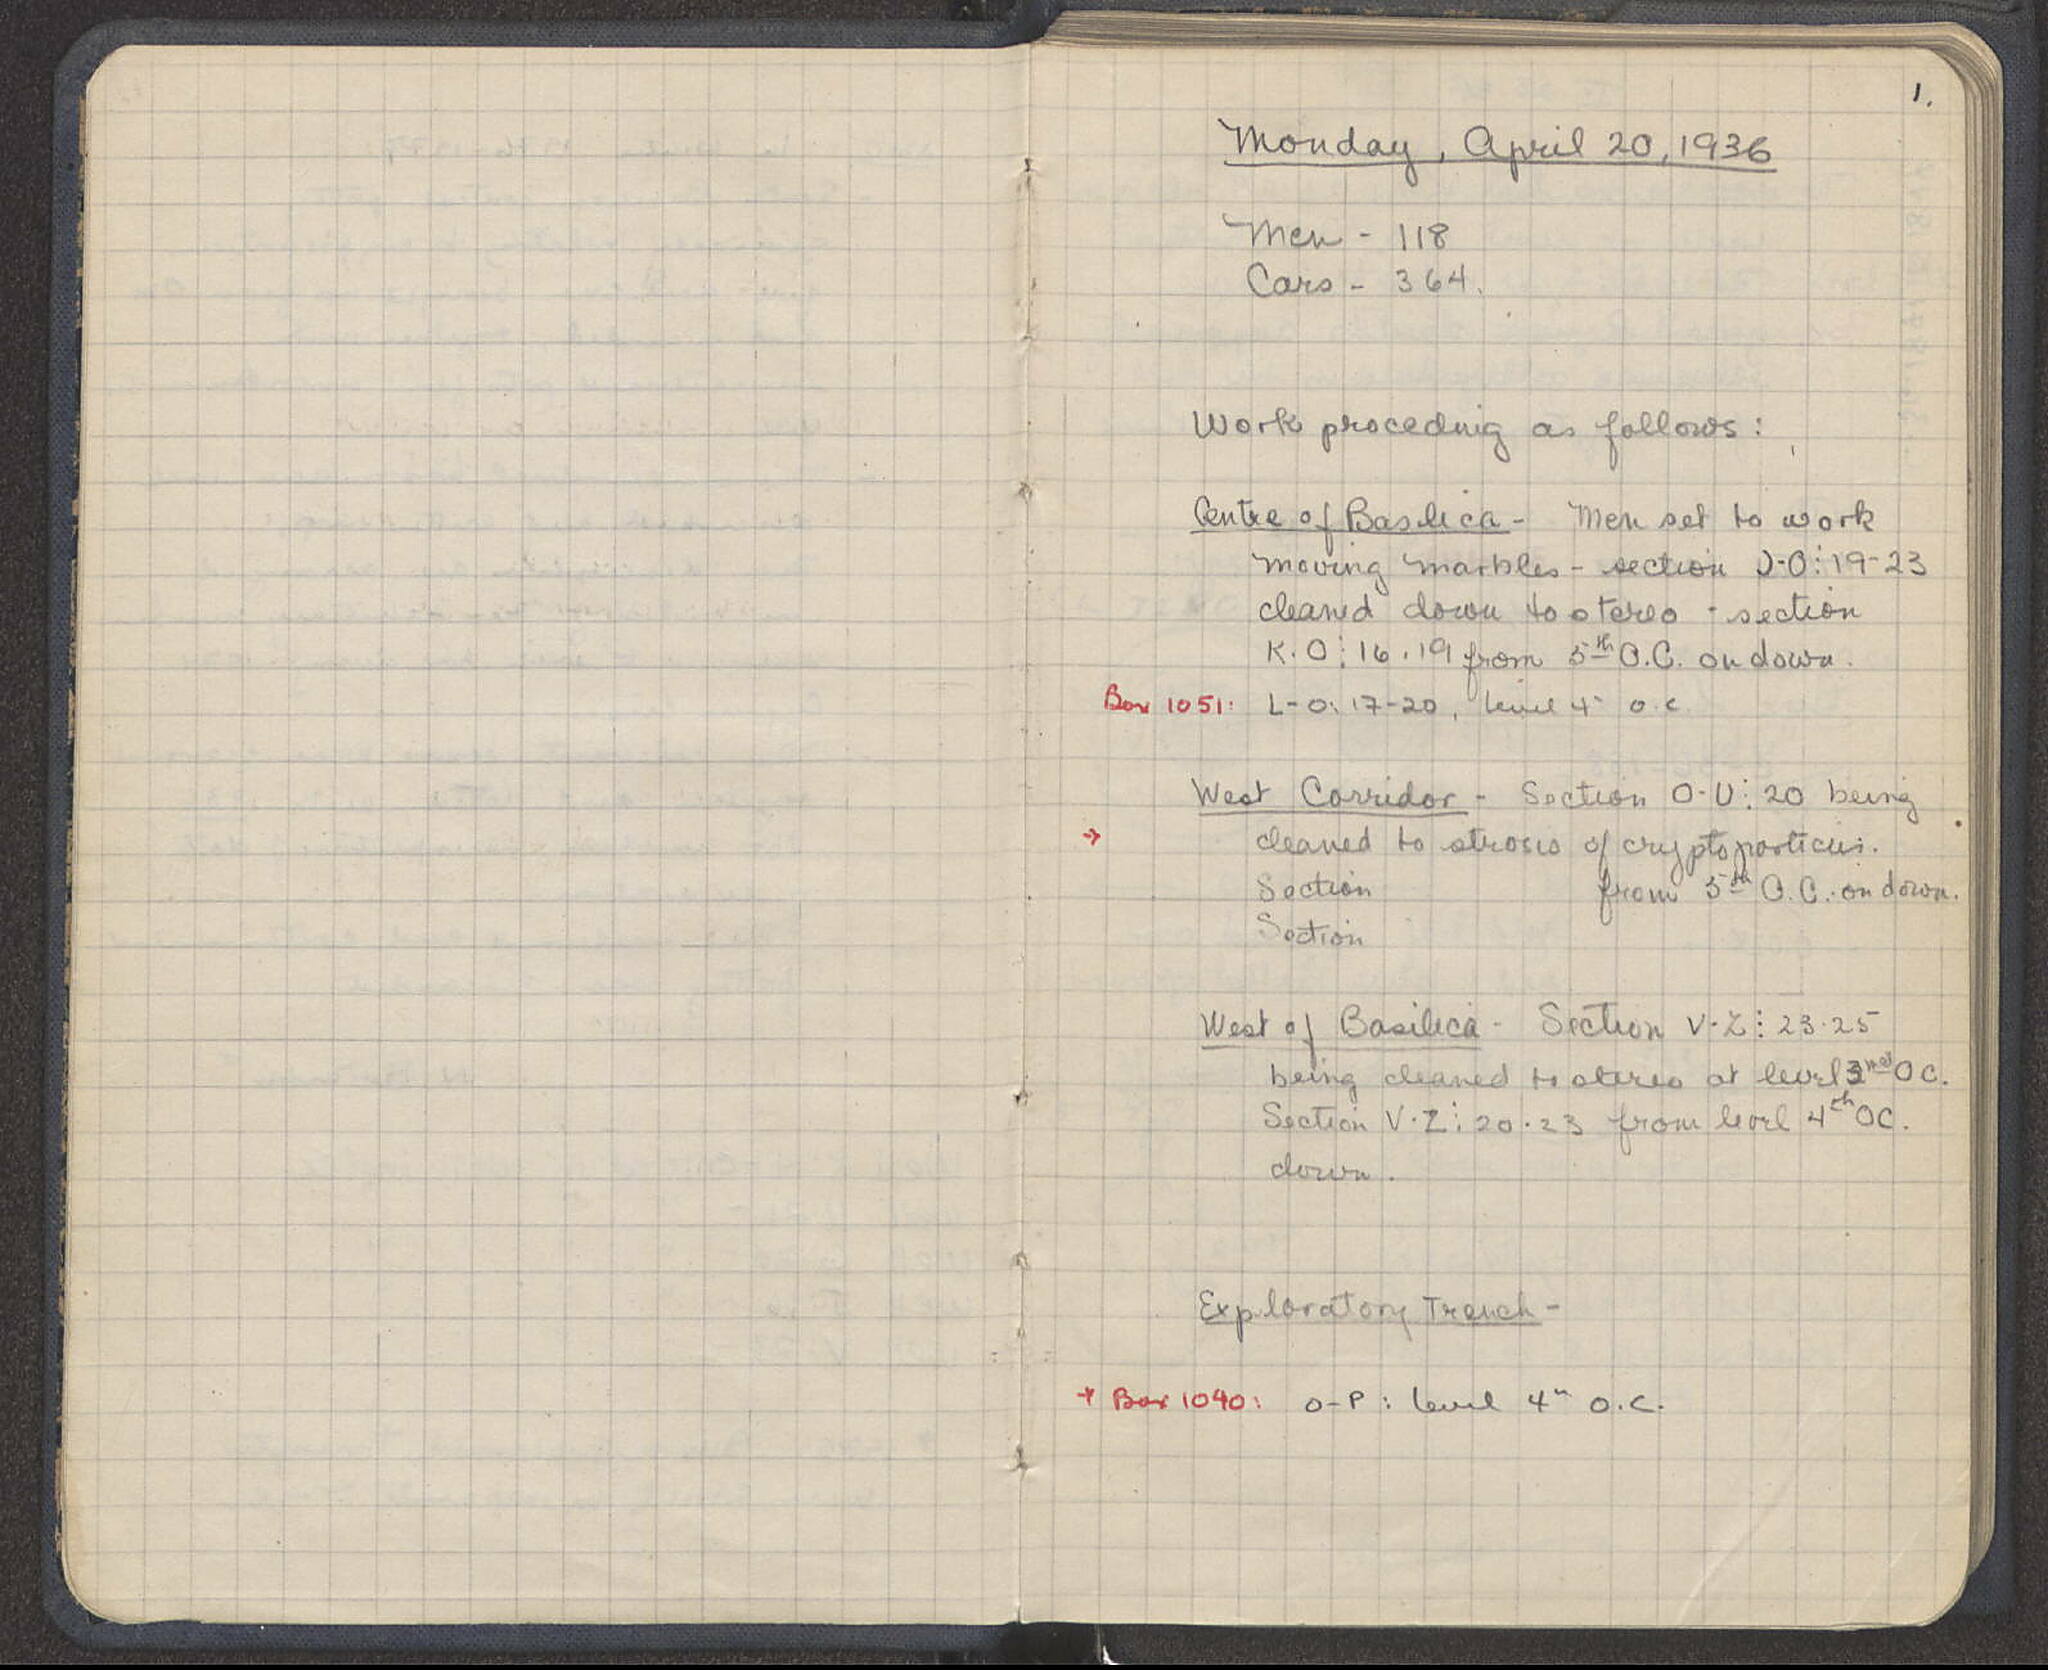 1.
Monday, April 20, 1936
Men - 118
Cars - 364.
Work proceding as follows:
Centre of Basilica - Men set to work
moving marbles - section J-O: 19-23
cleaned down to stereo - section
K-O: 16-19 from 5th O.C. on down.
Box 1051: L-O: 17-20, level 4" O.C.
West Corridor - Section O-U: 20 being
→ cleaned to strosis of cryptoporticus.
Section from 5th O.C. on down.
Section
West of Basilica - Section V-Z: 23-25
being cleaned to stereo at level OC.
Section V-Z: 20-23 from level 4th OC.
down.
Exploratory Trench -
→ Box 1040: O-P: level 4" O.C.